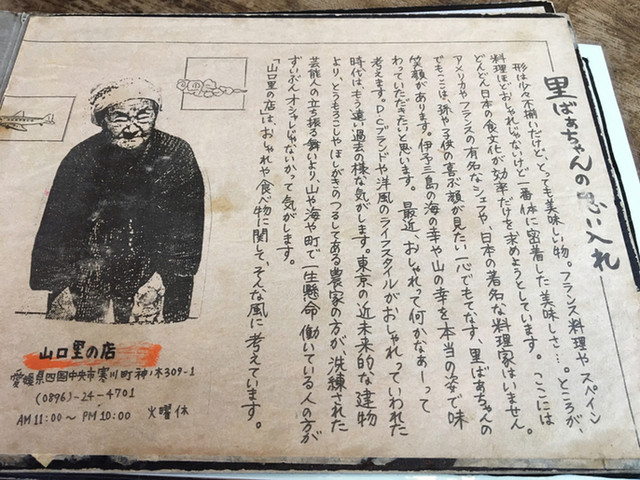 里ばあちゃんの思い入れ
形は少々不揃いだけど、とっても美味しい物。フランス料理やスペイン
料理ほどおしゃれじゃないけど一番体に密着した美味しさ…。ところが、
どんどん日本の食文化が効率だけを求めようとしています。ここには
アメリカやフランスの有名なシェフや、日本の著名な料理家はいません。
でもここは、孫や子供の喜ぶ顔が見たい一心でもてなす、里ばあちゃんの
笑顔があります。伊予三島の海の幸や山の幸を本当の姿で味
わっていただきたいと思います。最近、おしゃれって何かなぁーって
考えます。DCブランドや洋風のライフスタイルがおしゃれっていわれた
時代はもう遠い過去の様な気がします。東京の近未来的な建物
より、とうもろこしやほしがきのつるしてある農家の方が、洗練された
芸能人の立ち振る舞いより、山や海や町で一生懸命働いている人の方が
ずいぶんオシャレじゃないかって気がします。
「山口里の店」は、おしゃれや食べ物に関して、そんな風に考えています。
山口里の店
愛媛県四国中央市寒川町神ノ木309-1
(0896)-24-4701
AM11:00～PM10:00 火曜休